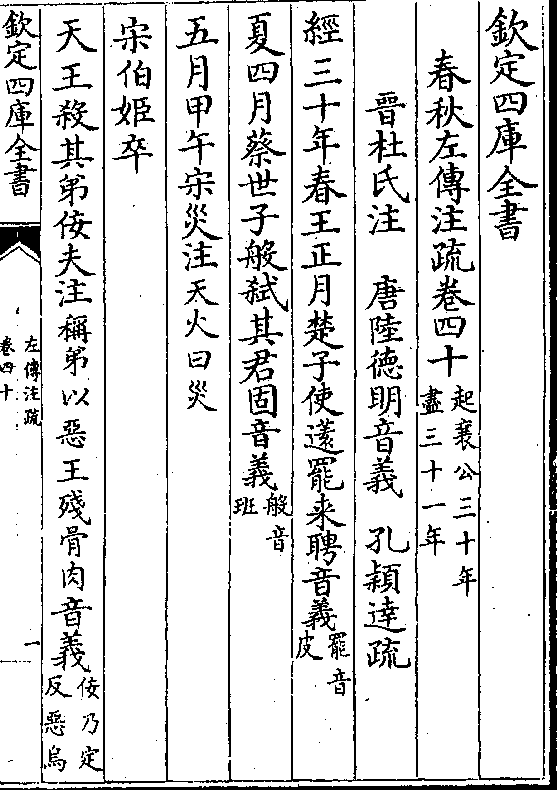 欽定四庫全書
春秋左傳注疏卷四十起襄公三十年盡三十一年
晉杜氏注　唐陸德明音義　孔穎達疏
經三十年春王正月楚子使薳罷来聘音義罷音皮
夏四月蔡世子般弑其君固音義般音班
五月甲午宋災注天火曰災
宋伯姬卒
天王殺其弟佞夫注稱弟以惡王殘骨肉音義佞乃定反惡烏
欽定四庫全書
左傳注疏
卷四十
一